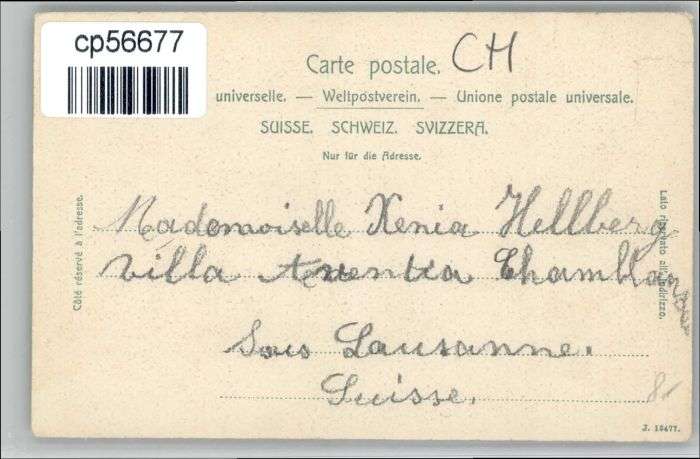 cp56677
Carte postale. CH
universelle. — Weltpostverein. — Unione postale universale.
SUISSE. SCHWEIZ. SVIZZERA.
Nur für die Adresse.
Côté réservé à l'adresse.
Lato riservato all'indirizzo.
Mademoiselle Xenia Hellberg
Villa Chamblandes
Sous Lausanne.
Suisse.
8.-
J. 10477.